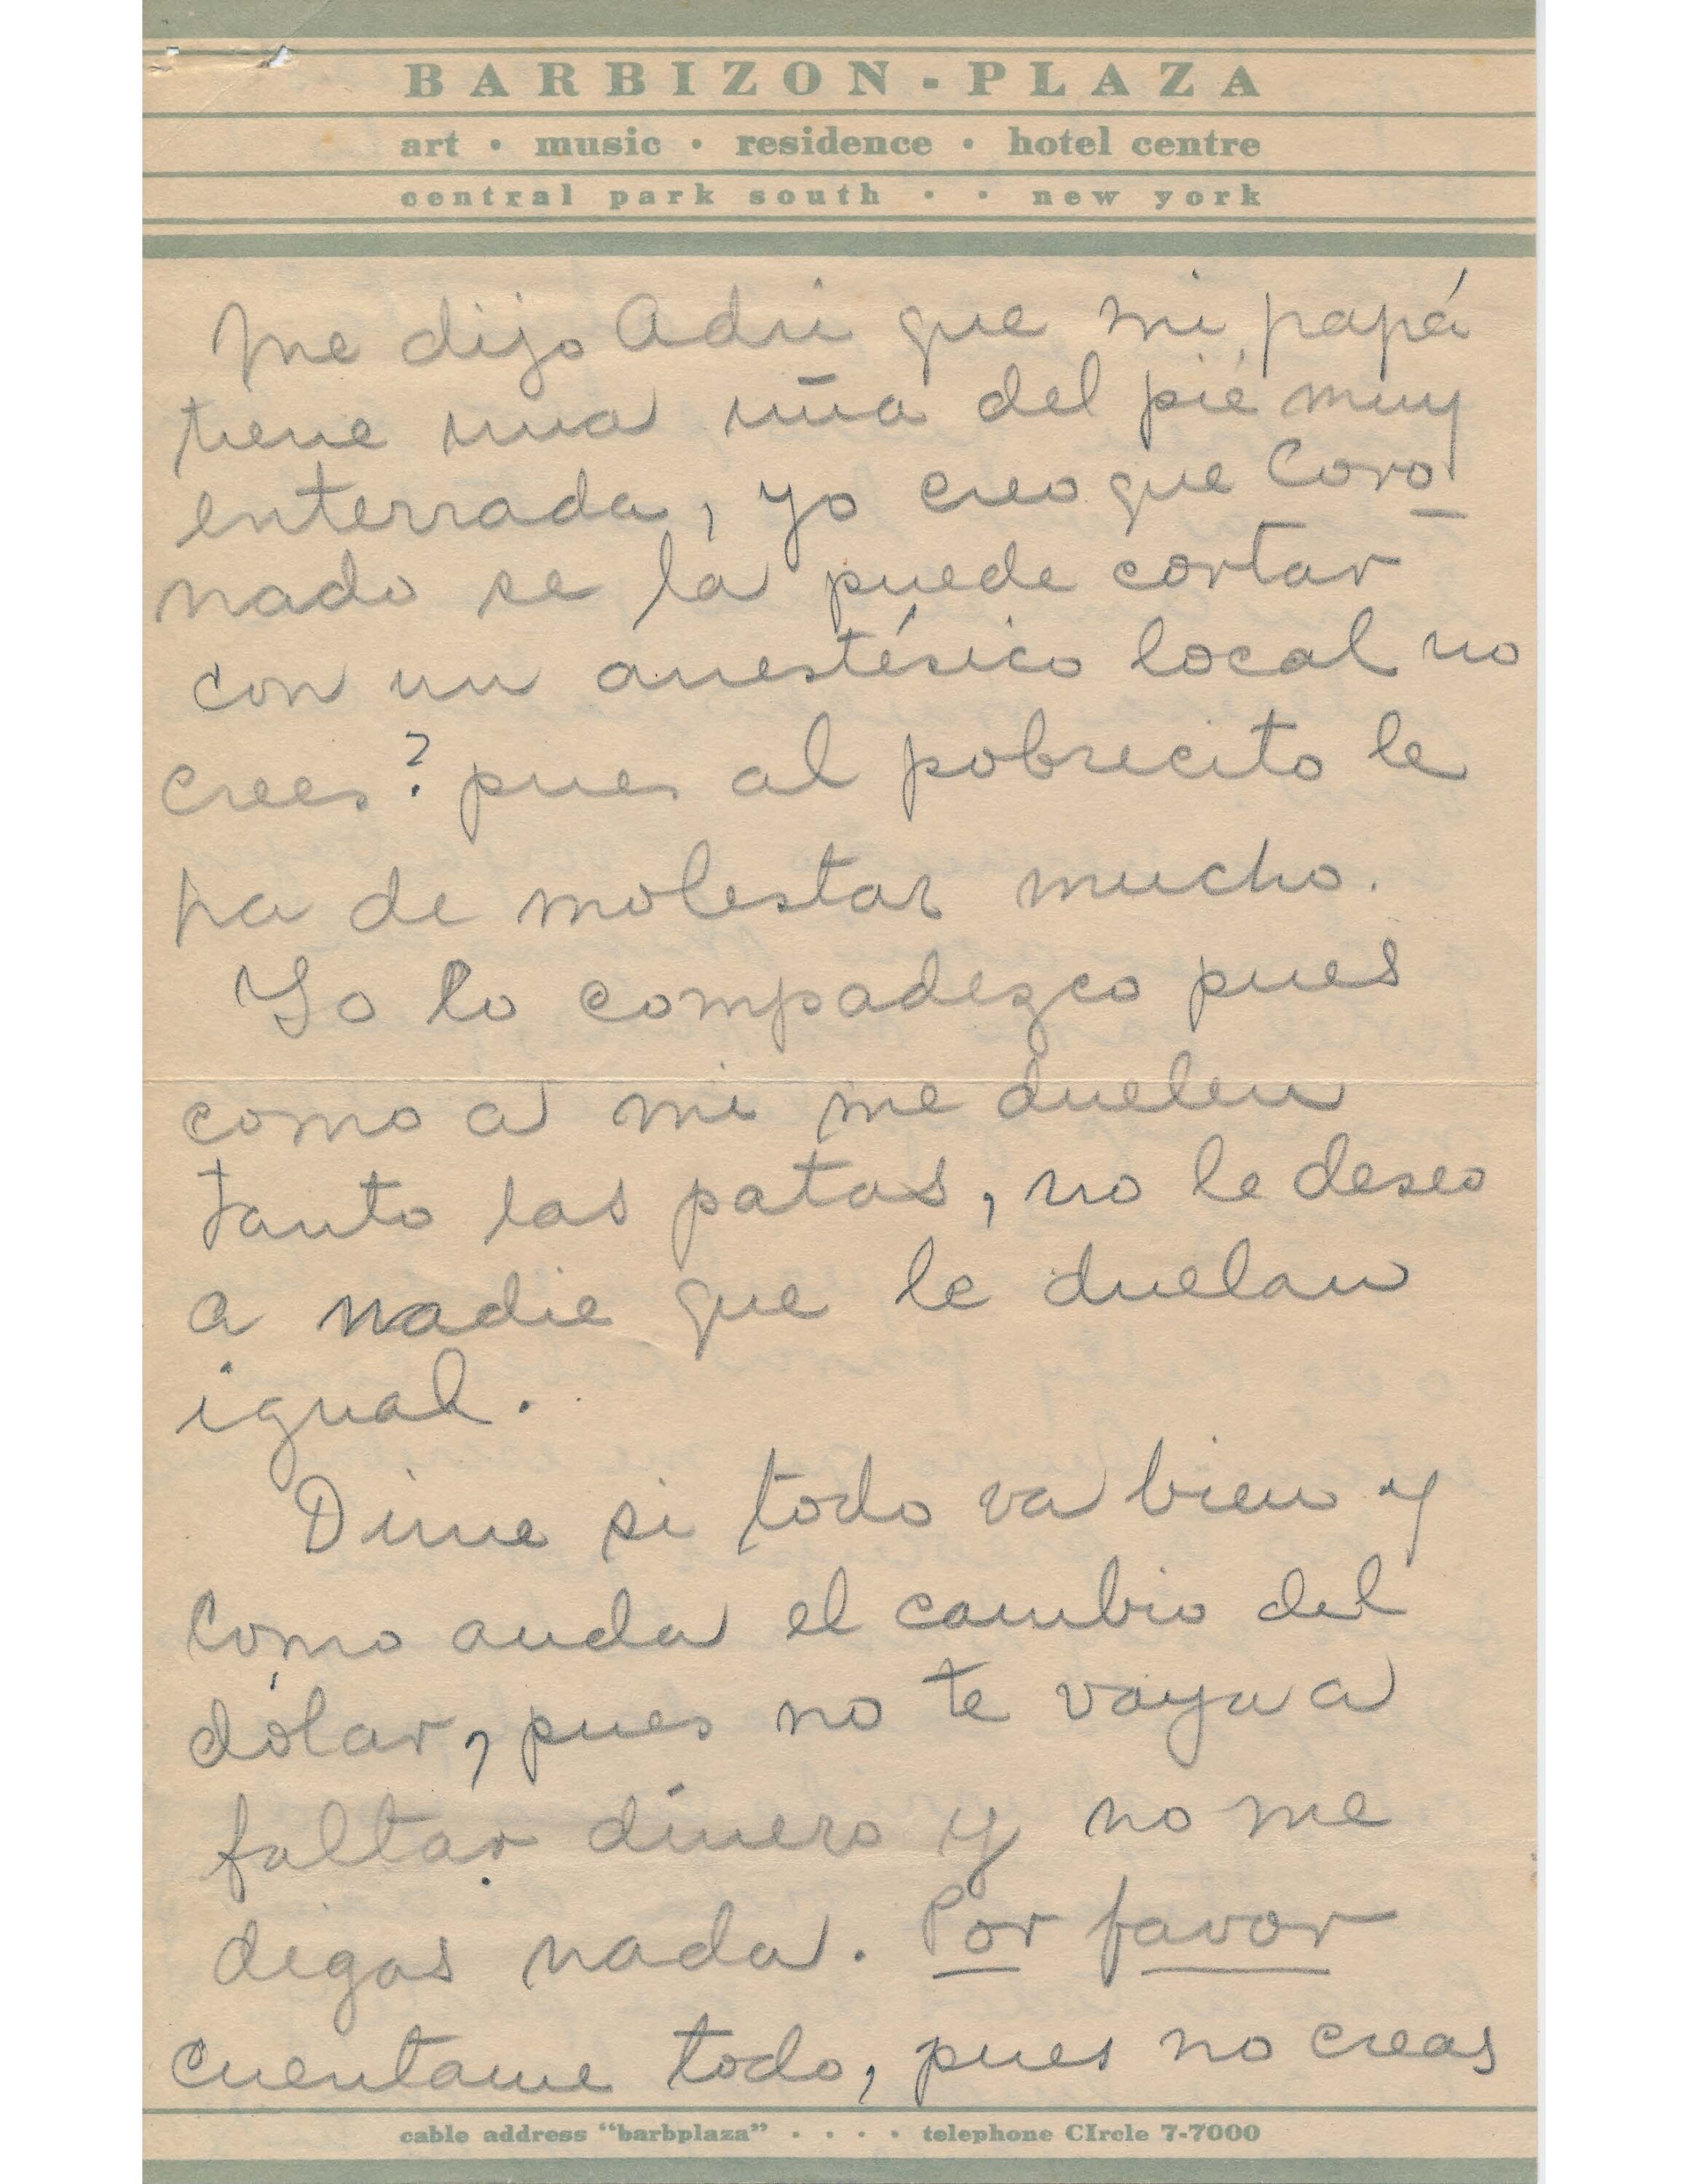 BARBIZON - PLAZA
art • music • residence • hotel centre
central park south • • new york
Me dijo Adri que mi papá
tiene una uña del pié muy
enterrada, yo creo que Coro_
nado se la puede cortar
con un anestésico local no
crees? pues al pobrecito le
ha de molestar mucho.
Yo lo compadezco pues
como a mi me duelen
tanto las patas, no le deseo
a nadie que le duelan
igual.
Dime si todo va bien y
como anda el cambio del
dólar, pues no te vaya a
faltar dinero y no me
digas nada. Por favor
cuentame todo, pues no creas
cable address "barbplaza" • • • • telephone CIrcle 7-7000